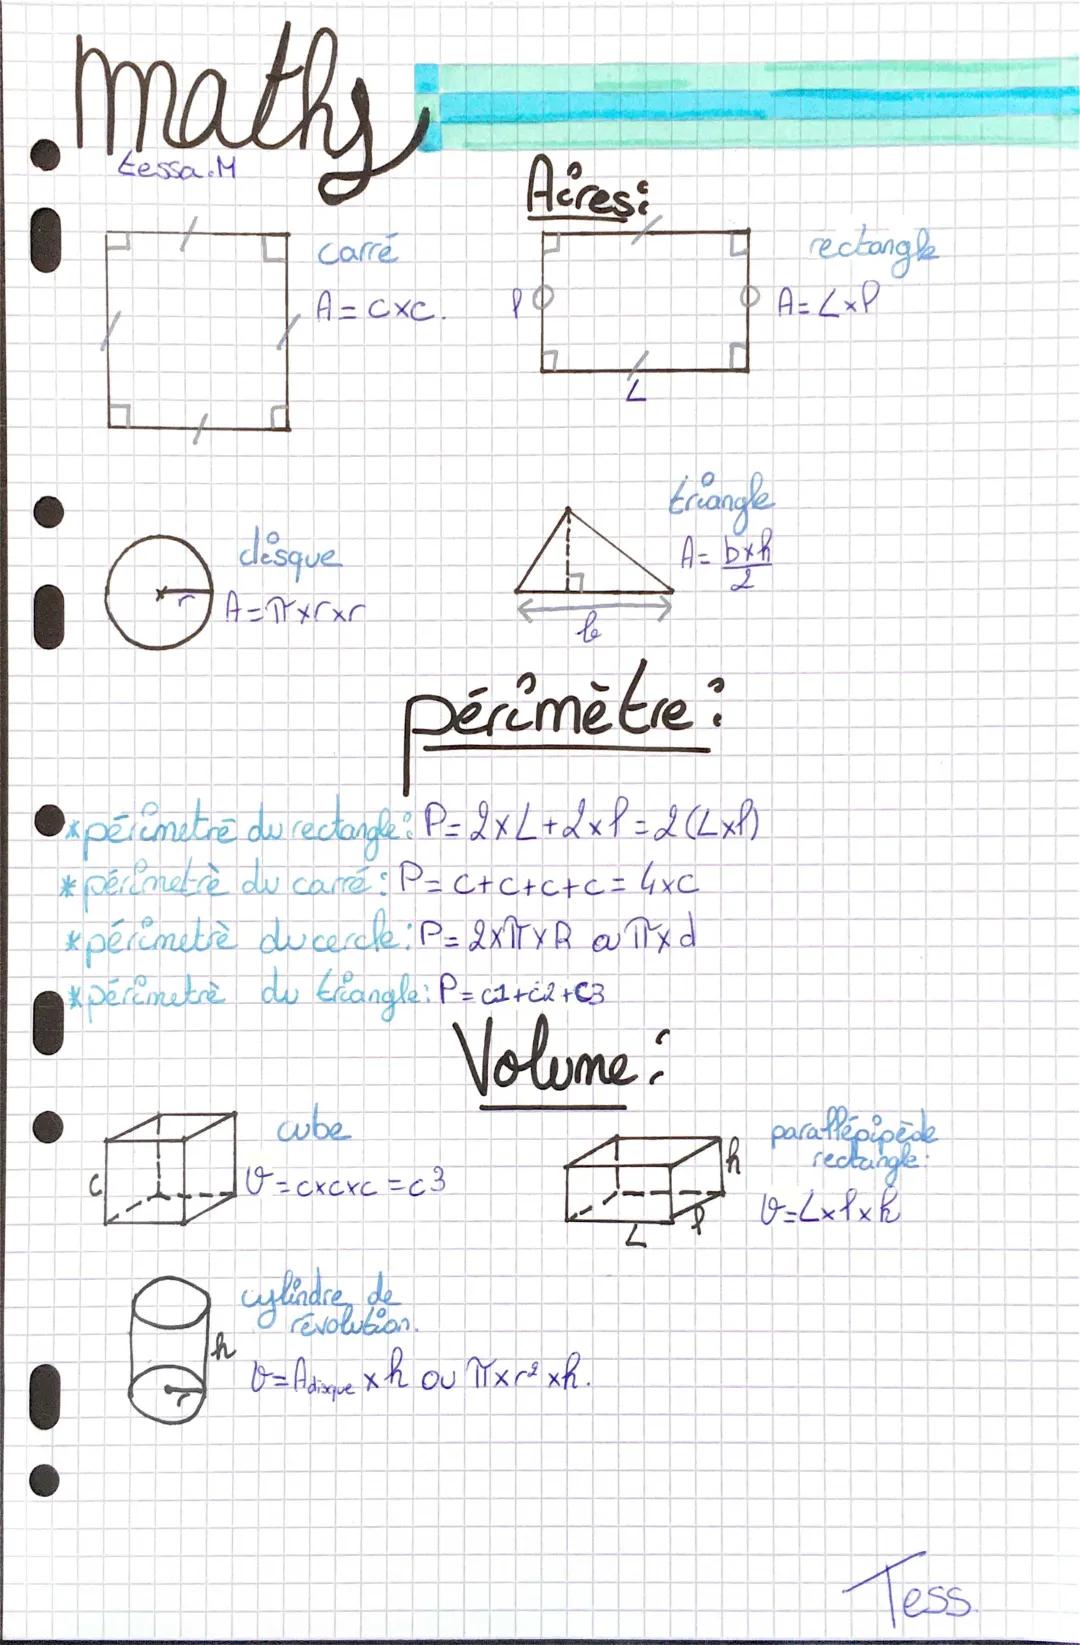 maths
tessa.M
Aires:
carré
A = c×c.
rectangle
l
A = L×l
L
disque
r
A = π×r×r
triangle
A = b×h/2
b
périmètre :
*périmetrè du rectangle : P = 2×L+2×l = 2(L×l)
*périmetrè du carré : P = c+c+c+c = 4×c
*périmetrè du cercle : P = 2×π×R ou π×d
*périmetrè du triangle : P = c1+c2+c3
Volume :
cube
c
V = c×c×c = c3
parallépipède
rectangle :
h
l
L
V = L×l×h
cylindre de
révolution.
h
r
V = Adisque × h ou π×r²×h.
Tess.